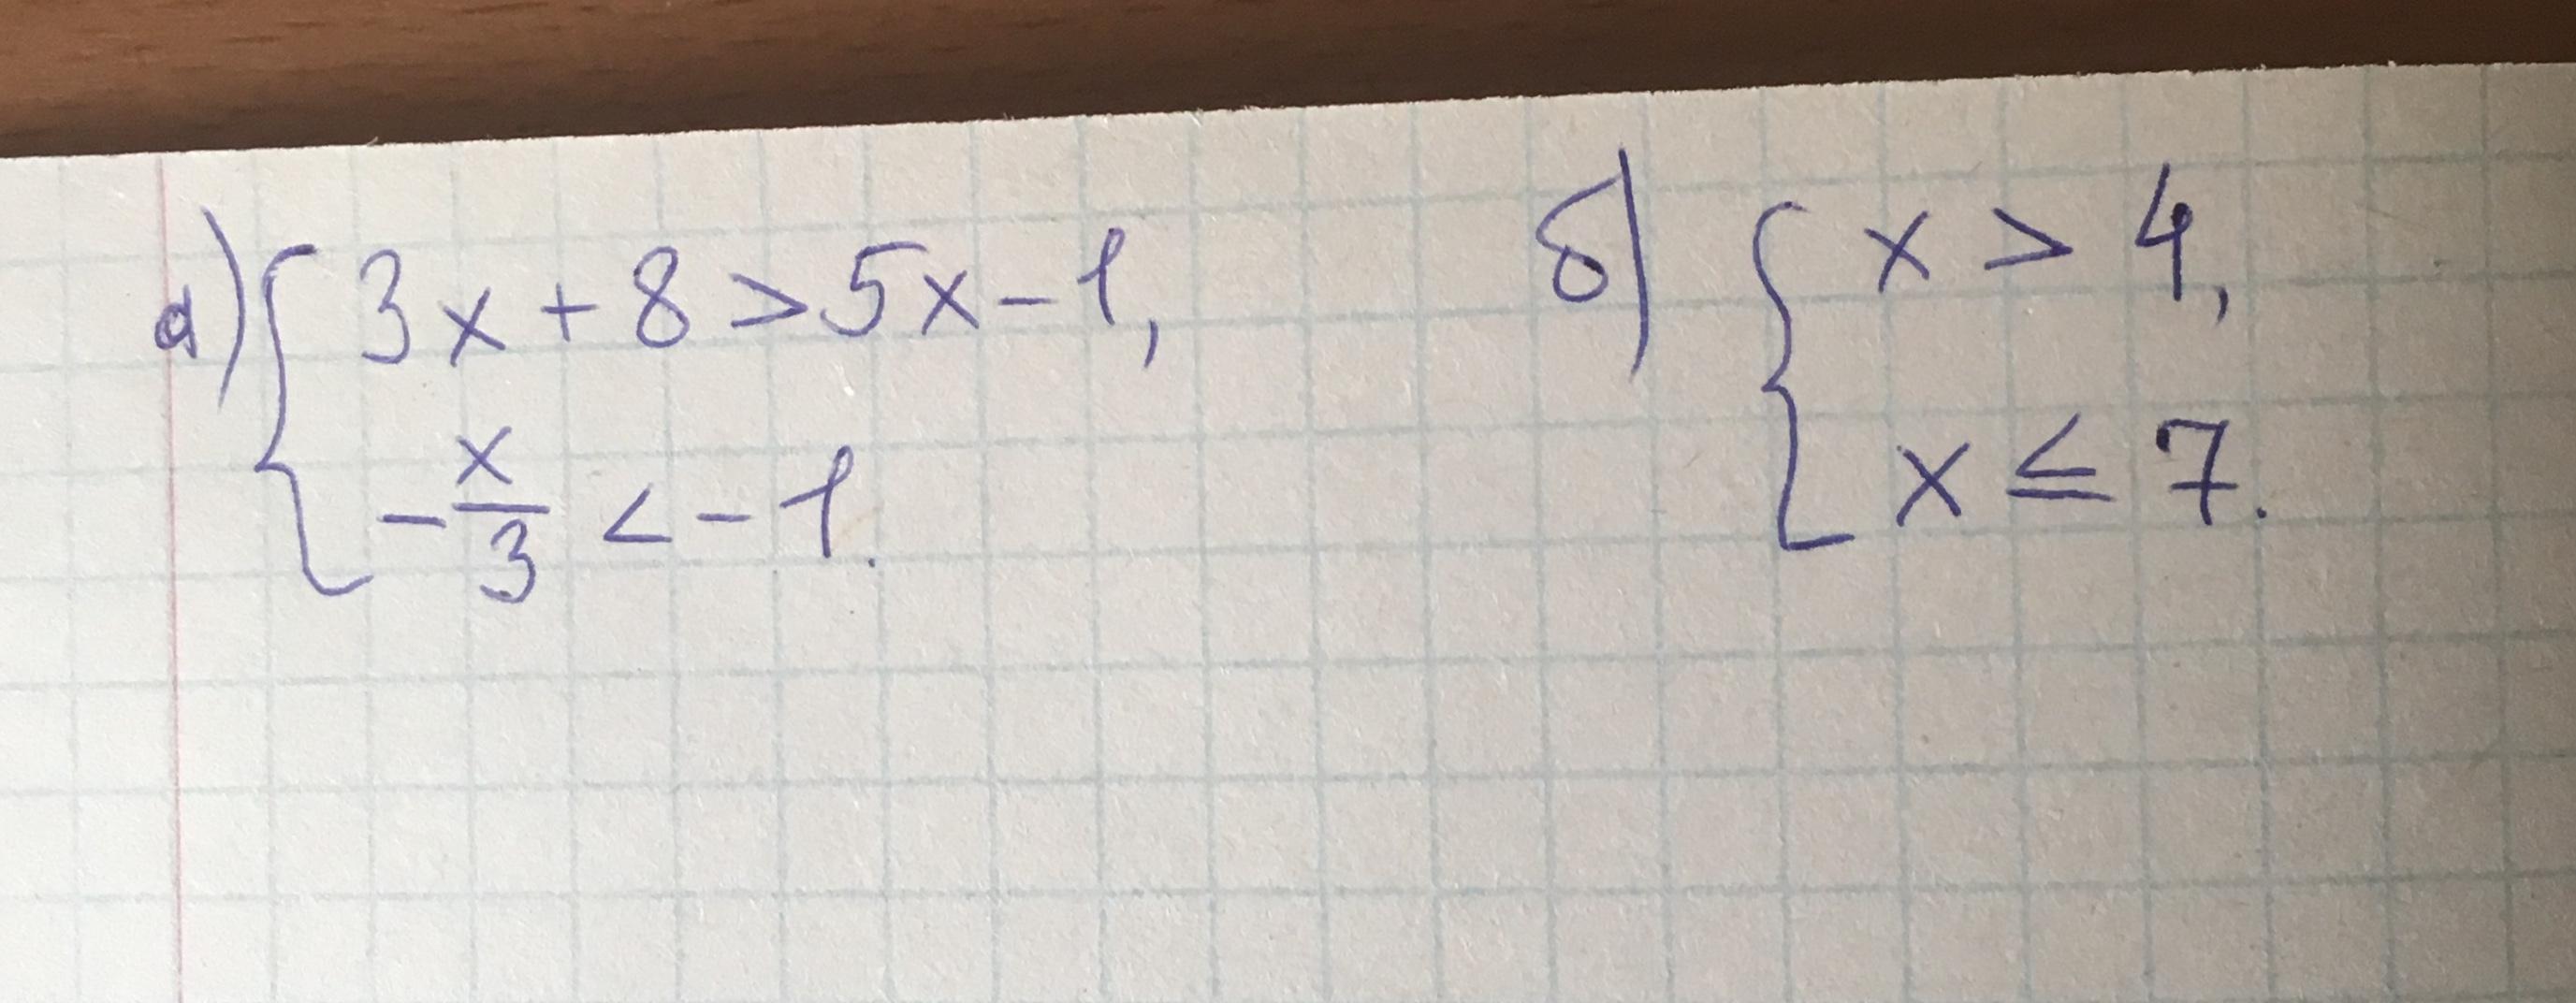 а) { 3x + 8 > 5x - 1,
- x/3 < - 1.
б) { x > 4,
x ≤ 7.